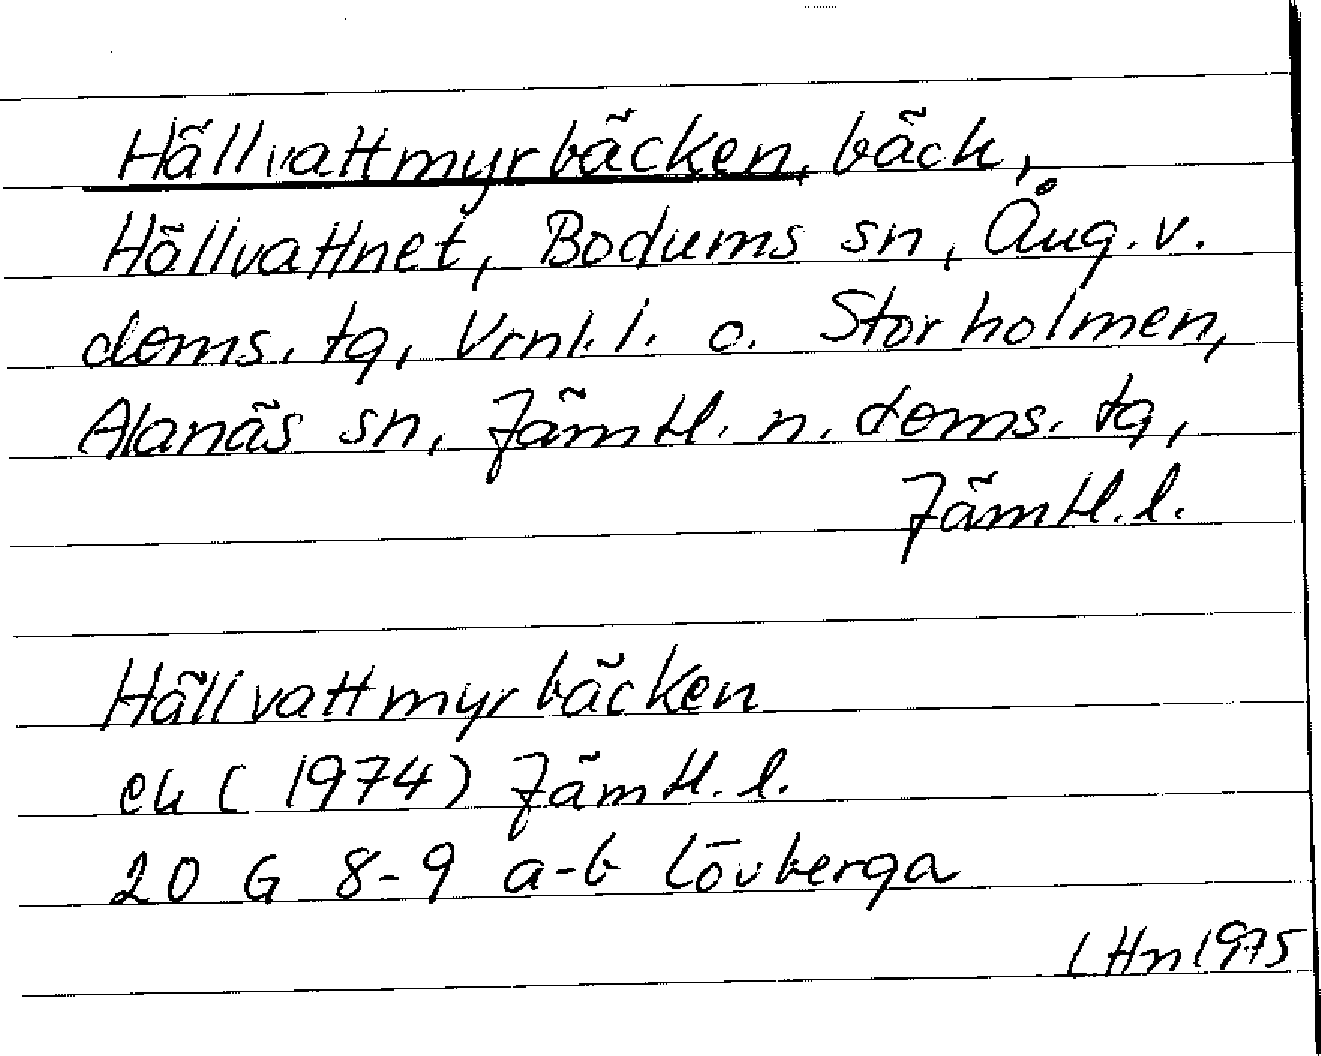 Hällvattmyrbäcken, bäck,
Höllvattnet, Bodums sn, Ång. v.
doms. tg, Vrnl. l. o. Storholmen,
Alanäs sn, Jämtl. n. doms. tg,
Jämtl. l.
Hällvattmyrbäcken
ek (1974) Jämtl. l.
20 G 8-9 a-b Lövberga
LHn 1975